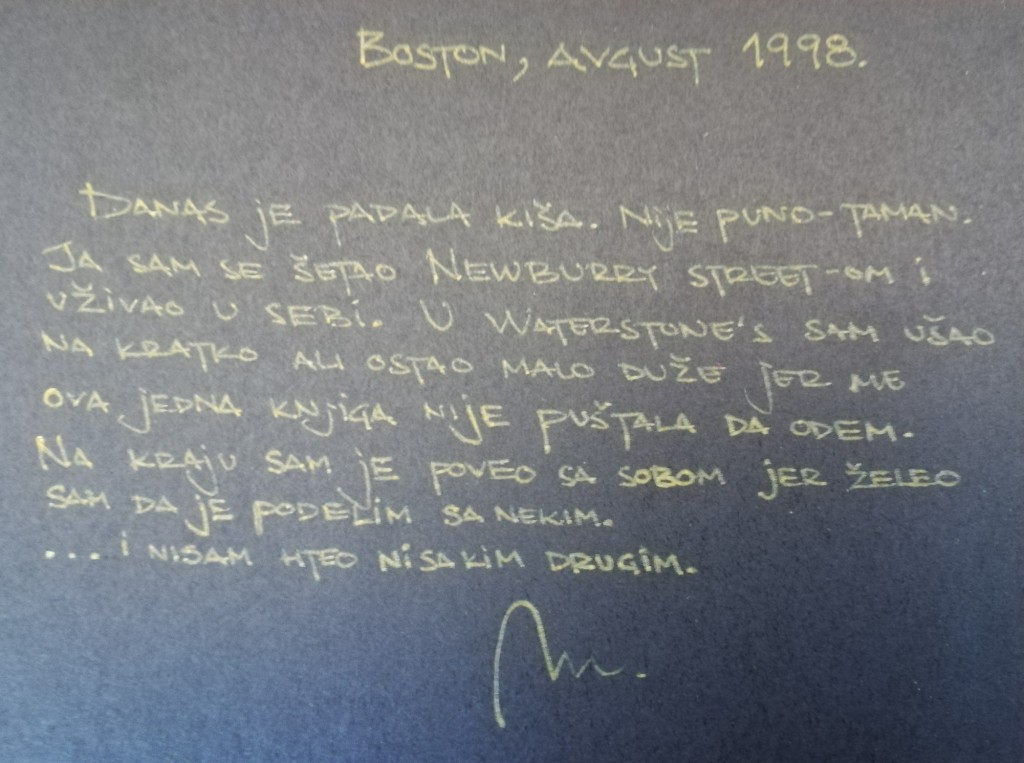 Boston, avgust 1998.
Danas je padala kiša. Nije puno-taman.
Ja sam se šetao Newburry street-om i
uživao u sebi. U Waterstone's sam ušao
na kratko ali ostao malo duže jer me
ova jedna knjiga nije puštala da odem.
Na kraju sam je poveo sa sobom jer želeo
sam da je podelim sa nekim.
... i nisam hteo ni sa kim drugim.